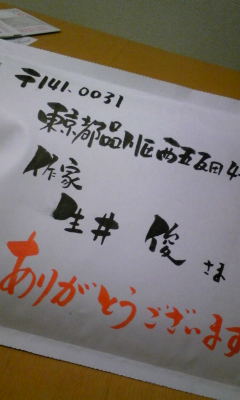 〒141.0031
東京都品川区西五反田4
作家
生井 俊 さま
ありがとうございます